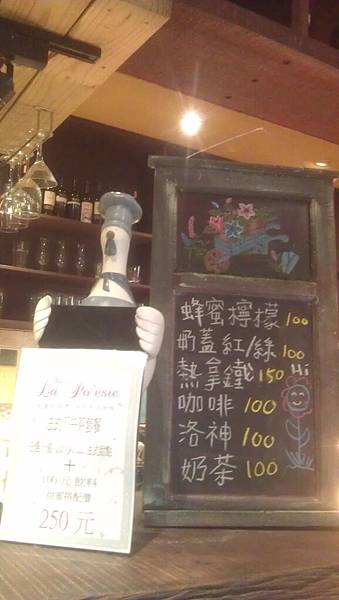 La Poesie
100元飲料
甜蜜搭配價
250元
蜂蜜檸檬 100
奶蓋紅/綠 100
熱拿鐵 150 Hi
咖啡 100
洛神 100
奶茶 100